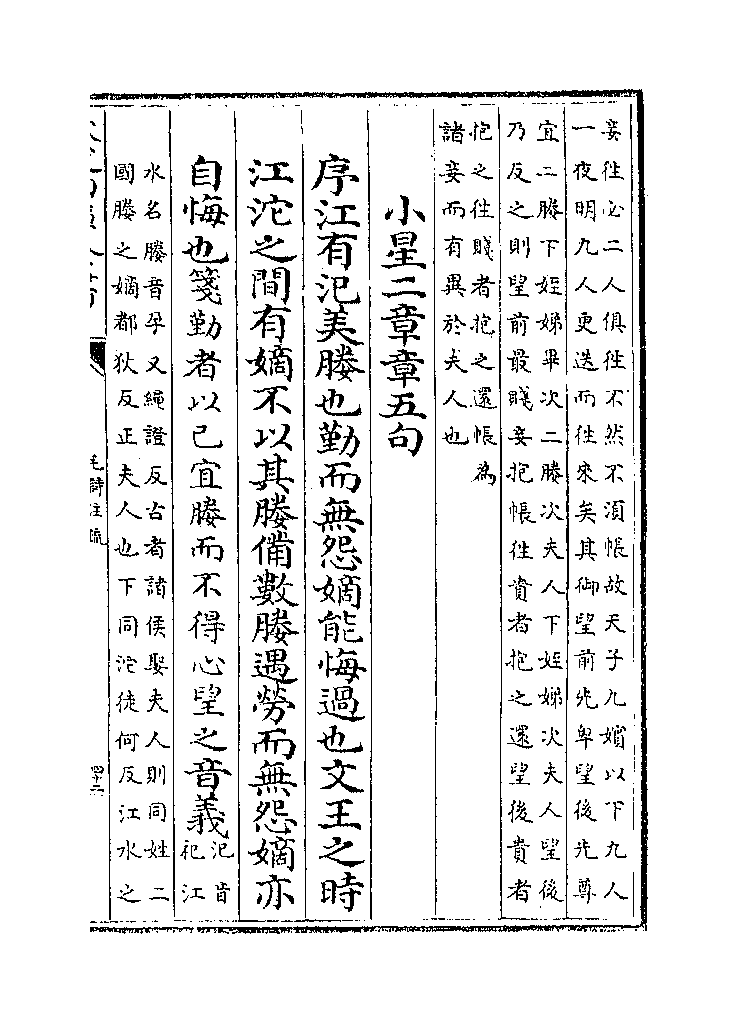 妾往必二人俱往不然不須帳故天子九嬪以下九人
一夜明九人更迭而往來矣其御望前先卑望後先尊
宜二媵下姪娣畢次二媵次夫人下姪娣次夫人望後
乃反之則望前最賤妾抱帳往貴者抱之還望後貴者
抱之往賤者抱之還帳為
諸妾而有異於夫人也
小星二章章五句
序江有汜美媵也勤而無怨嫡能悔過也文王之時
江沱之間有嫡不以其媵備數媵遇勞而無怨嫡亦
自悔也箋勤者以己宜媵而不得心望之音義
汜音
祀江
水名媵音孕又繩證反古者諸侯娶夫人則同姓二
國媵之嫡都狄反正夫人也下同沱徒何反江水之
毛詩注疏